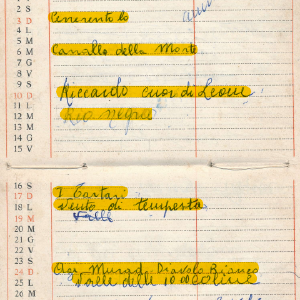 2 S
3 D Cenerentola
4 L
5 M
6 M Cavallo della Morte
7 G
8 V
9 S Riccardo cuor di Leone
10 D
11 L
12 M Rio Negro
13 M
14 G
15 V
16 S
17 D I Tartari
18 L Vento di tempesta
19 M
20 M
21 G
22 V
23 S
24 D Diavolo Bianco
25 L Valle delle 10.000 Colline
26 M